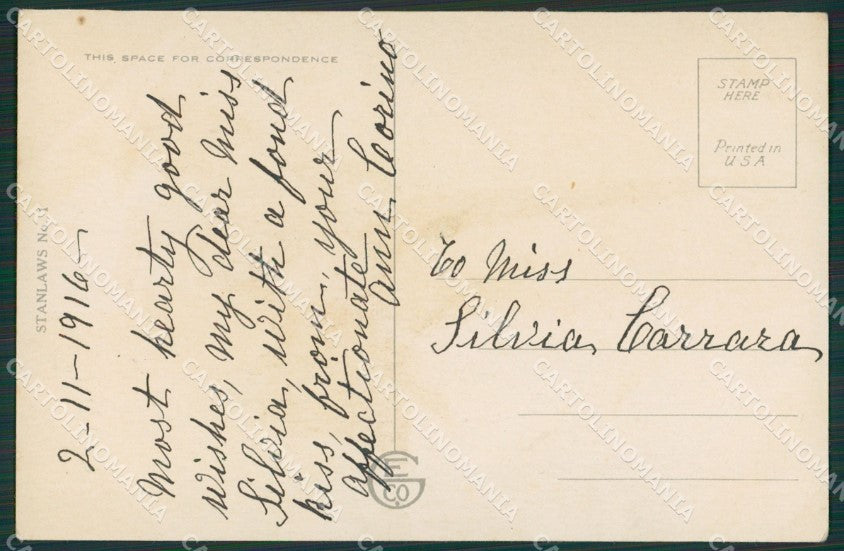 THIS SPACE FOR CORRESPONDENCE
STANLAWS No. 1
2-11-1916-
Most hearty good
wishes, my dear Miss
Silvia, with a fond
kiss, from, your
affectionate
Ann Corino
STAMP
HERE
Printed in
U S A
To Miss
Silvia Carrara
E G CO.
CARTOLINOMANIA